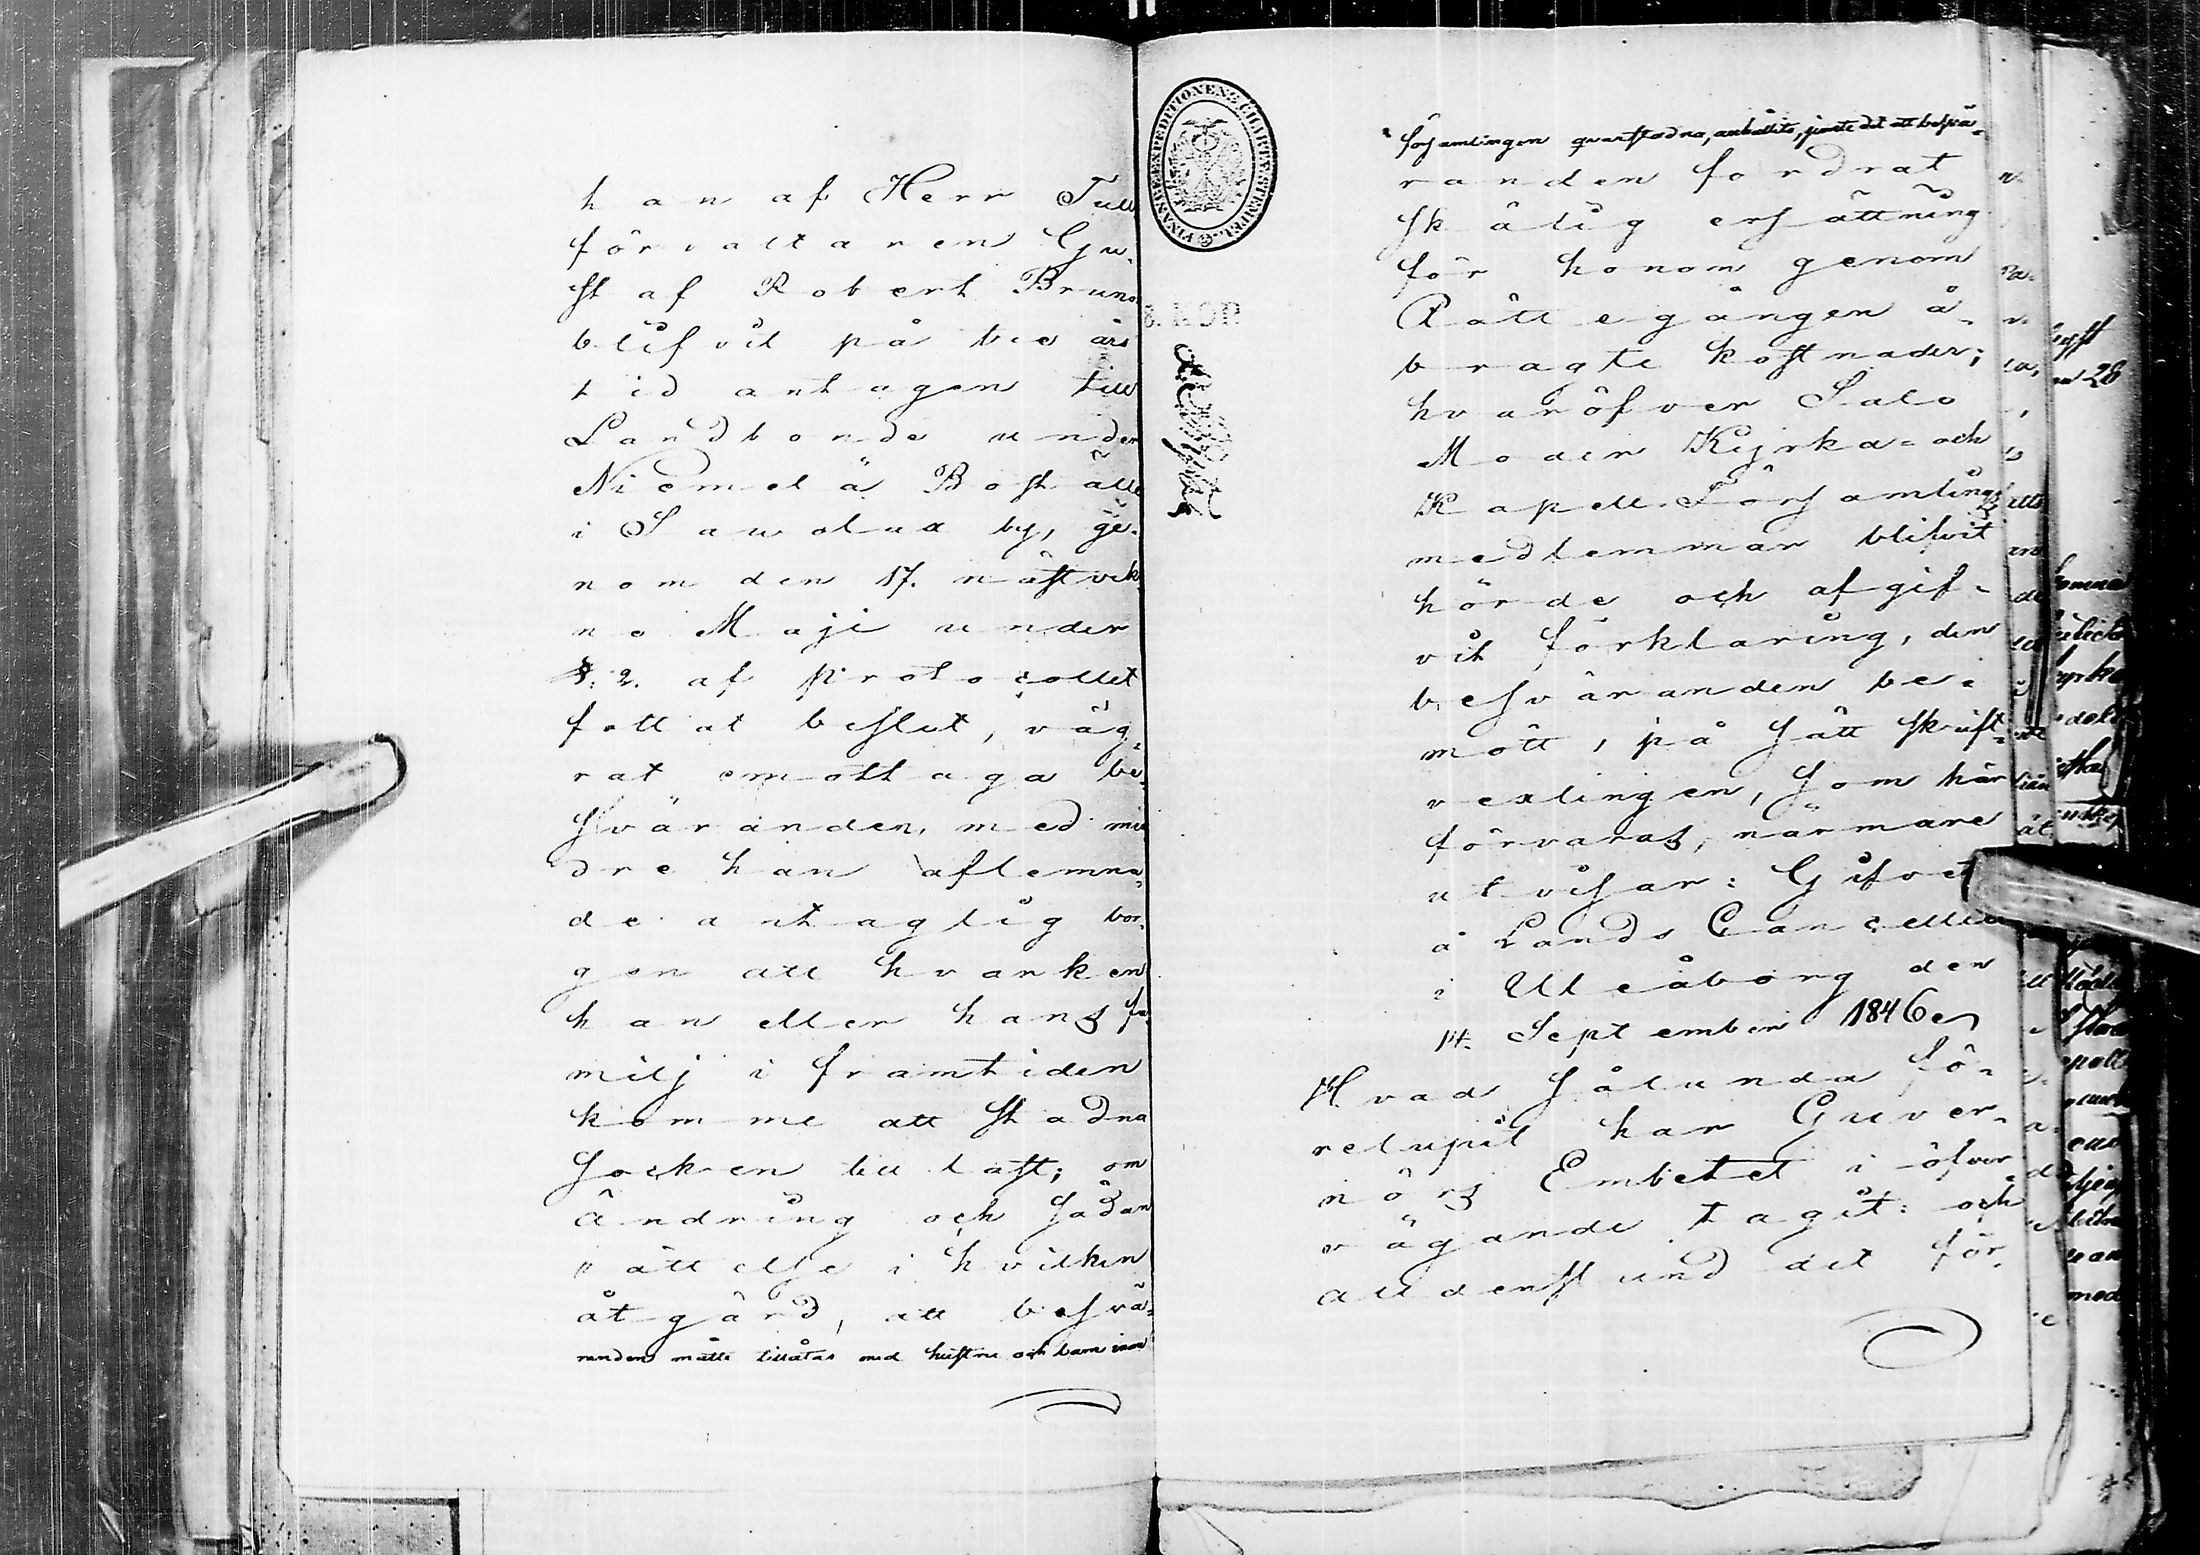 han af Herr Tull
förvaltaren Gu-
staf Robert Brun
blifvit på tio års
tid antagen till
Landbonde under
Niemelä Boställe
i Sawolax by, ge-
nom den 17. nästvek
no Maji under
§. 2. af protocollet
fattat beslut, väg-
rat emottaga be-
sväranden, med min
dre han aflemna-
de antaglig bor-
gen att hvarken
han eller hans fa-
milj i framtiden
komme att stadna
Socken till last; om
ändring och sådan
rättelse i hvilken
åtgärd, att besvä-
randen måtte tillåtas med hustru och barn inom
FINANCE-EXPEDITIONENS CHARTÆ STEMPEL.
KOP.
församlingen qvarstadna, anhållits, jemte det att besvä-
randen fordrat
skälig ersättning
för honom genom
Rättegången å-
bragte kostnader;
hvaröfver Salo
Moder Kyrka- och
Kapell Församlings
medlemmar blifvit
hörde och afgif-
vit förklaring, den
besväranden be-
mött, på sätt skrift-
vexlingen, som här
förvaras, närmare
utvisar: Gifvet
å Lands Cancelliet
i Uleåborg den
14. September 1846.
Hvad sålunda fö-
relupit har Guver-
nörs Embetet i öfver-
vägande tagit: och
alldenstund det för